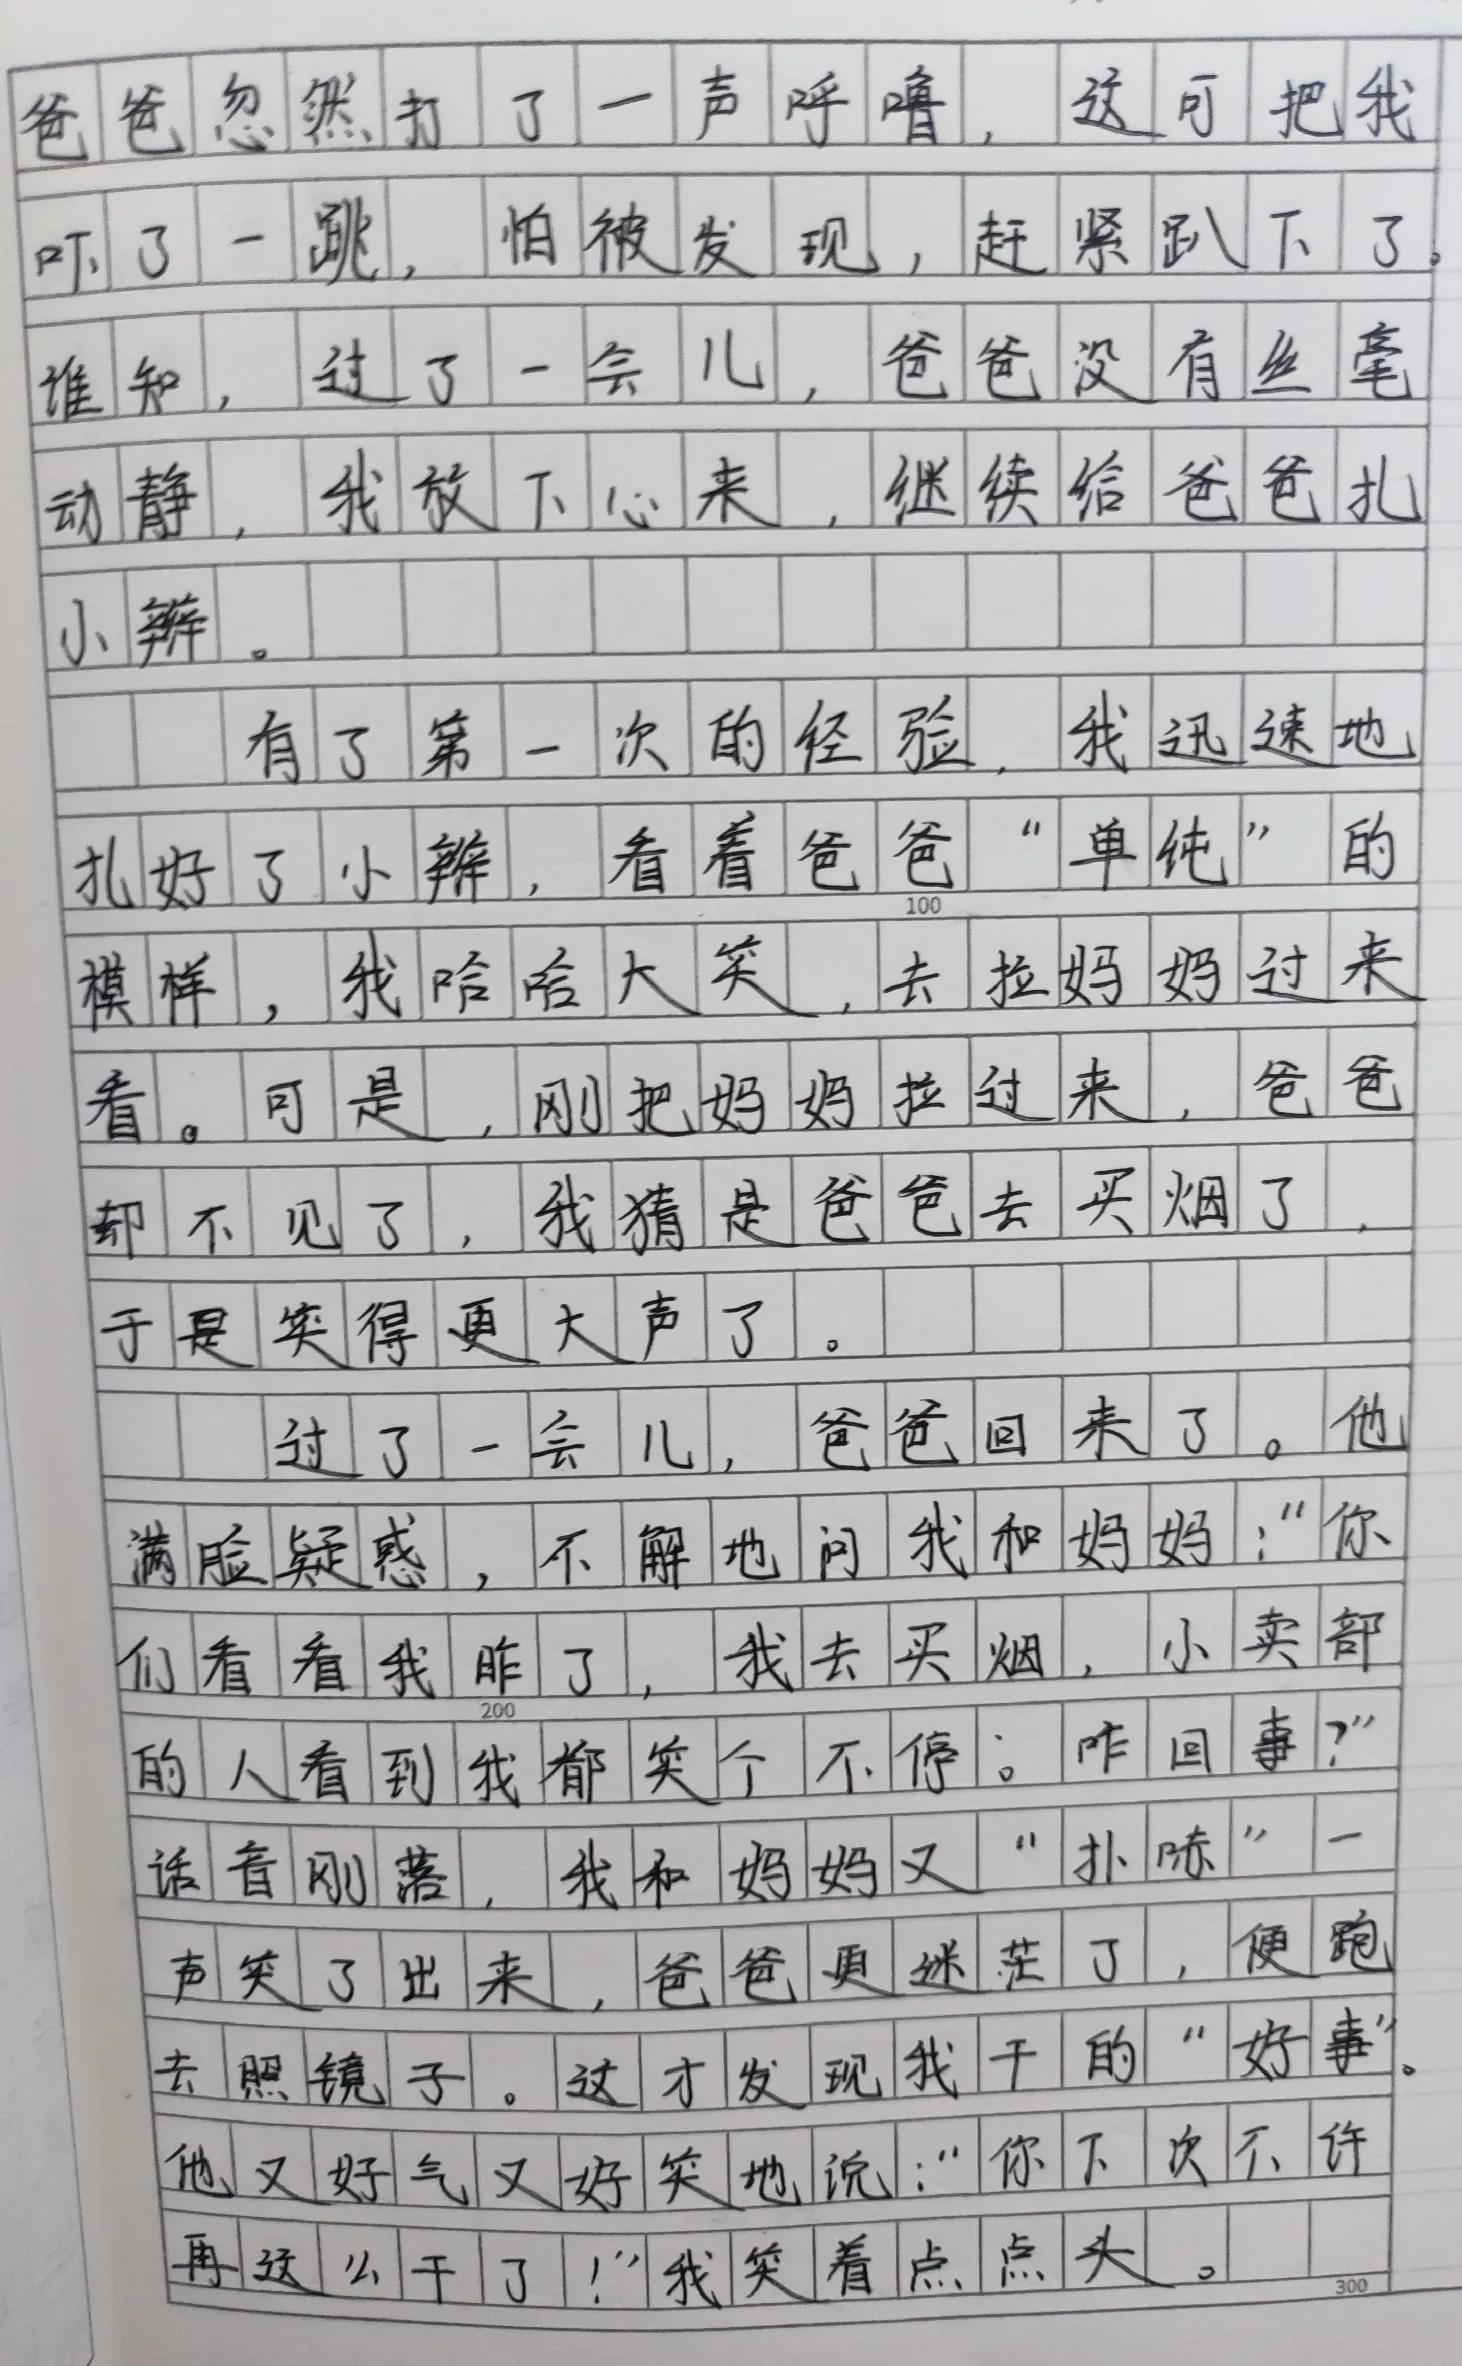 爸爸忽然打了一声呼噜，这可把我
吓了一跳，怕被发现，赶紧趴下了。
谁知，过了一会儿，爸爸没有丝毫
动静，我放下心来，继续给爸爸扎
小辫。
有了第一次的经验，我迅速地
扎好了小辫，看着爸爸“单纯”的
100
模样，我哈哈大笑，去拉妈妈过来
看。可是，刚把妈妈拉过来，爸爸
却不见了，我猜是爸爸去买烟了，
于是笑得更大声了。
过了一会儿，爸爸回来了。他
满脸疑惑，不解地问我和妈妈：“你
们看看我咋了，我去买烟，小卖部
200
的人看到我都笑个不停。咋回事？”
话音刚落，我和妈妈又“扑哧”一
声笑了出来，爸爸更迷茫了，便跑
去照镜子。这才发现我干的“好事”。
他又好气又好笑地说：“你下次不许
再这么干了！”我笑着点点头。
300